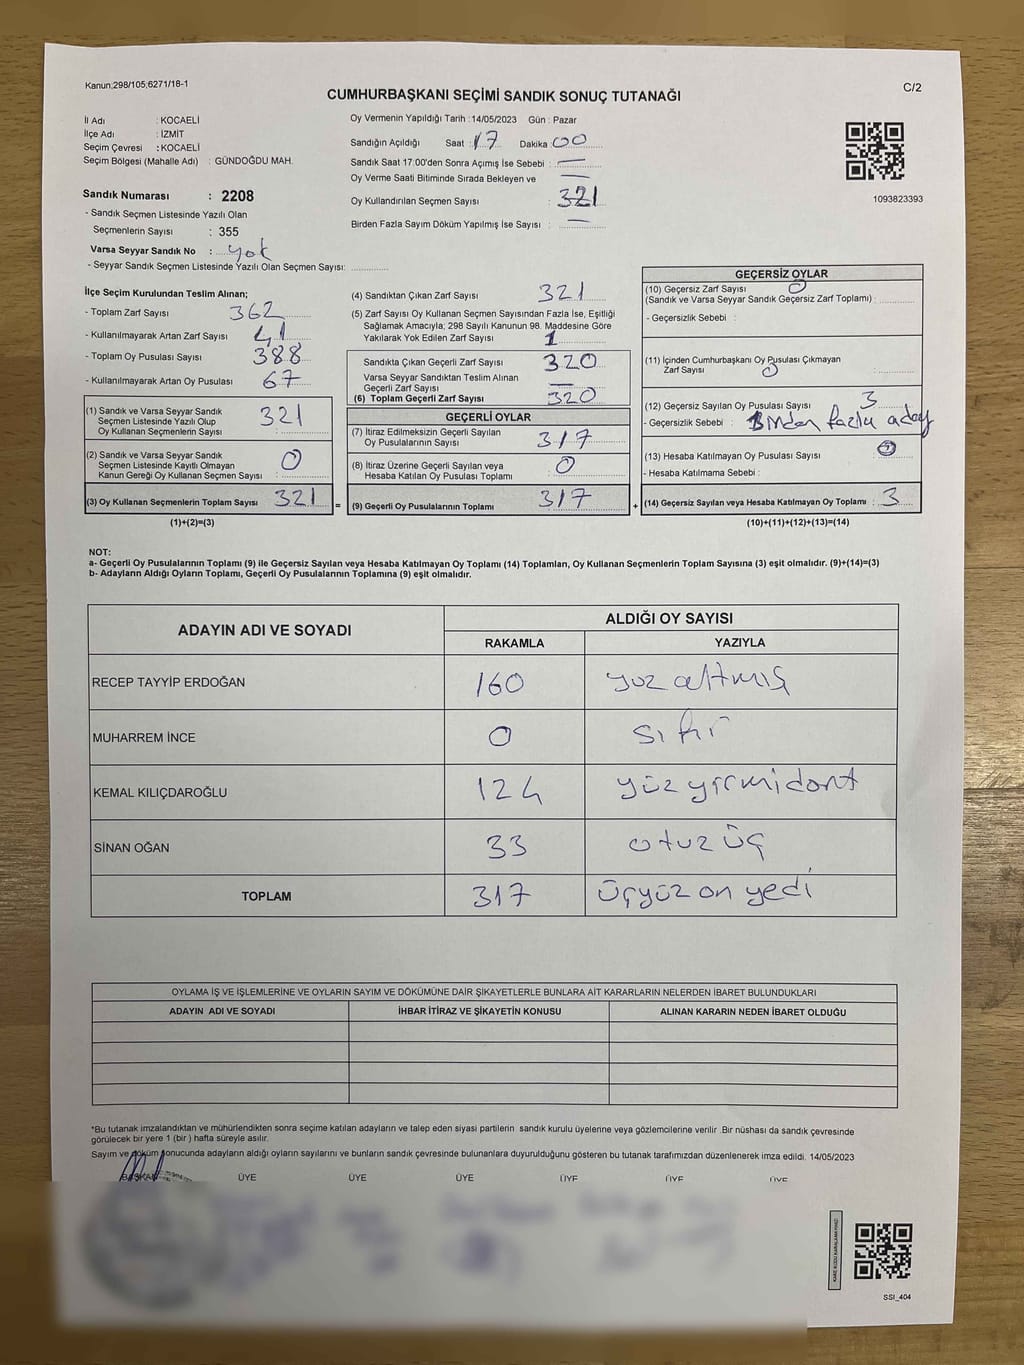 Kanun;298/105;6271/18-1
C/2
CUMHURBAŞKANI SEÇİMİ SANDIK SONUÇ TUTANAĞI
İl Adı : KOCAELİ
İlçe Adı : İZMİT
Seçim Çevresi : KOCAELİ
Seçim Bölgesi (Mahalle Adı) : GÜNDOĞDU MAH.
Sandık Numarası : 2208
- Sandık Seçmen Listesinde Yazılı Olan
Seçmenlerin Sayısı : 355
Varsa Seyyar Sandık No : yok
- Seyyar Sandık Seçmen Listesinde Yazılı Olan Seçmen Sayısı:
Oy Vermenin Yapıldığı Tarih :14/05/2023 Gün : Pazar
Sandığın Açıldığı Saat : 17 Dakika 00
Sandık Saat 17:00'den Sonra Açımış İse Sebebi : —
Oy Verme Saati Bitiminde Sırada Bekleyen ve —
Oy Kullandırılan Seçmen Sayısı : 321
Birden Fazla Sayım Döküm Yapılmış İse Sayısı : —
1093823393
İlçe Seçim Kurulundan Teslim Alınan;
- Toplam Zarf Sayısı 362
- Kullanılmayarak Artan Zarf Sayısı 41
- Toplam Oy Pusulası Sayısı 388
- Kullanılmayarak Artan Oy Pusulası 67
(1) Sandık ve Varsa Seyyar Sandık
Seçmen Listesinde Yazılı Olup
Oy Kullanan Seçmenlerin Sayısı : 321
(2) Sandık ve Varsa Seyyar Sandık
Seçmen Listesinde Kayıtlı Olmayan
Kanun Gereği Oy Kullanan Seçmen Sayısı : 0
(3) Oy Kullanan Seçmenlerin Toplam Sayısı 321 =
(1)+(2)=(3)
(4) Sandıktan Çıkan Zarf Sayısı 321
(5) Zarf Sayısı Oy Kullanan Seçmen Sayısından Fazla İse, Eşitliği
Sağlamak Amacıyla; 298 Sayılı Kanunun 98. Maddesine Göre
Yakılarak Yok Edilen Zarf Sayısı 1
Sandıkta Çıkan Geçerli Zarf Sayısı 320
Varsa Seyyar Sandıktan Teslim Alınan
Geçerli Zarf Sayısı —
(6) Toplam Geçerli Zarf Sayısı 320
GEÇERLİ OYLAR
(7) İtiraz Edilmeksizin Geçerli Sayılan
Oy Pusulalarının Sayısı : 317
(8) İtiraz Üzerine Geçerli Sayılan veya
Hesaba Katılan Oy Pusulası Toplamı : 0
(9) Geçerli Oy Pusulalarının Toplamı 317 +
GEÇERSİZ OYLAR
(10) Geçersiz Zarf Sayısı 0
(Sandık ve Varsa Seyyar Sandık Geçersiz Zarf Toplamı) :
- Geçersizlik Sebebi :
(11) İçinden Cumhurbaşkanı Oy Pusulası Çıkmayan
Zarf Sayısı 0
(12) Geçersiz Sayılan Oy Pusulası Sayısı 3
- Geçersizlik Sebebi : Birden fazla aday
(13) Hesaba Katılmayan Oy Pusulası Sayısı
- Hesaba Katılmama Sebebi :
(14) Geçersiz Sayılan veya Hesaba Katılmayan Oy Toplamı : 3
(10)+(11)+(12)+(13)=(14)
NOT:
a- Geçerli Oy Pusulalarının Toplamı (9) ile Geçersiz Sayılan veya Hesaba Katılmayan Oy Toplamı (14) Toplamları, Oy Kullanan Seçmenlerin Toplam Sayısına (3) eşit olmalıdır. (9)+(14)=(3)
b- Adayların Aldığı Oyların Toplamı, Geçerli Oy Pusulalarının Toplamına (9) eşit olmalıdır.
ADAYIN ADI VE SOYADI
ALDIĞI OY SAYISI
RAKAMLA YAZIYLA
RECEP TAYYİP ERDOĞAN 160 yüz altmış
MUHARREM İNCE 0 sıfır
KEMAL KILIÇDAROĞLU 124 yüz yirmidört
SİNAN OĞAN 33 otuz üç
TOPLAM 317 üçyüz on yedi
OYLAMA İŞ VE İŞLEMLERİNE VE OYLARIN SAYIM VE DÖKÜMÜNE DAİR ŞİKAYETLERLE BUNLARA AİT KARARLARIN NELERDEN İBARET BULUNDUKLARI
ADAYIN ADI VE SOYADI İHBAR İTİRAZ VE ŞİKAYETİN KONUSU ALINAN KARARIN NEDEN İBARET OLDUĞU
*Bu tutanak imzalandıktan ve mühürlendikten sonra seçime katılan adayların ve talep eden siyasi partilerin sandık kurulu üyelerine veya gözlemcilerine verilir .Bir nüshası da sandık çevresinde
görülecek bir yere 1 (bir ) hafta süreyle asılır.
Sayım ve döküm sonucunda adayların aldığı oyların sayılarını ve bunların sandık çevresinde bulunanlara duyurulduğunu gösteren bu tutanak tarafımızdan düzenlenerek imza edildi. 14/05/2023
BAŞKAN ÜYE ÜYE ÜYE ÜYE ÜYE ÜYE
KARE KODU KARALAMAYINIZ!
SSI_404